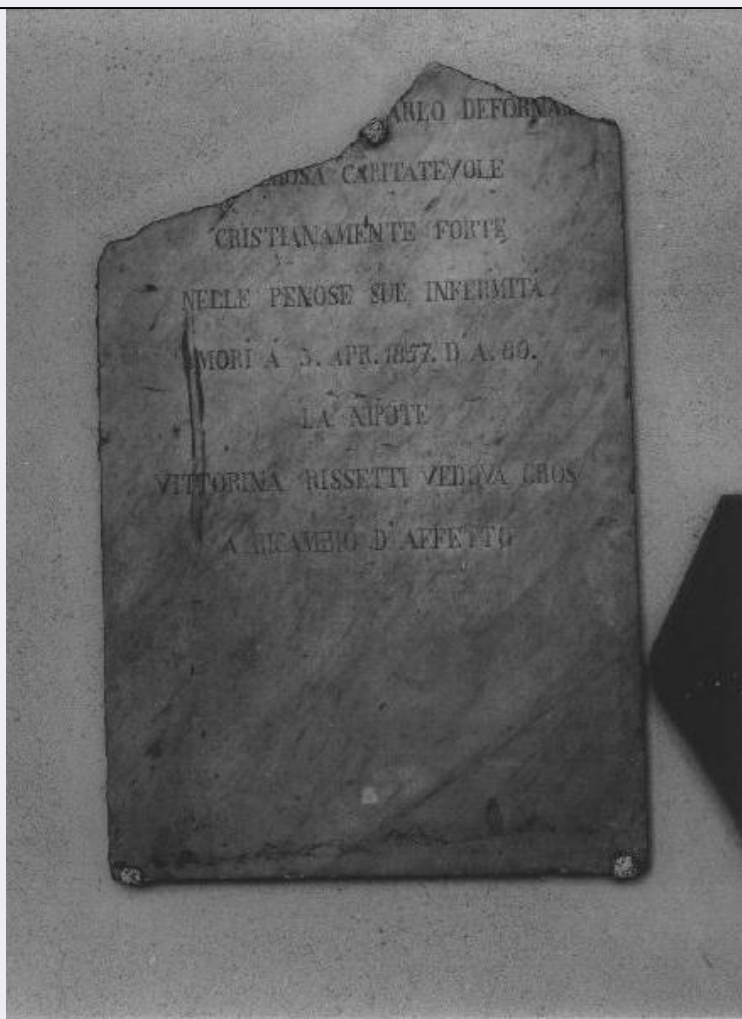 ARLO DEFORNA
EROSA CARITATEVOLE
CRISTIANAMENTE FORTE
NELLE PENOSE SUE INFERMITÀ
MORÌ A 3. APR. 1857. D'A. 80.
LA NIPOTE
VITTORINA RISSETTI VEDOVA CROS
A RICAMBIO D'AFFETTO